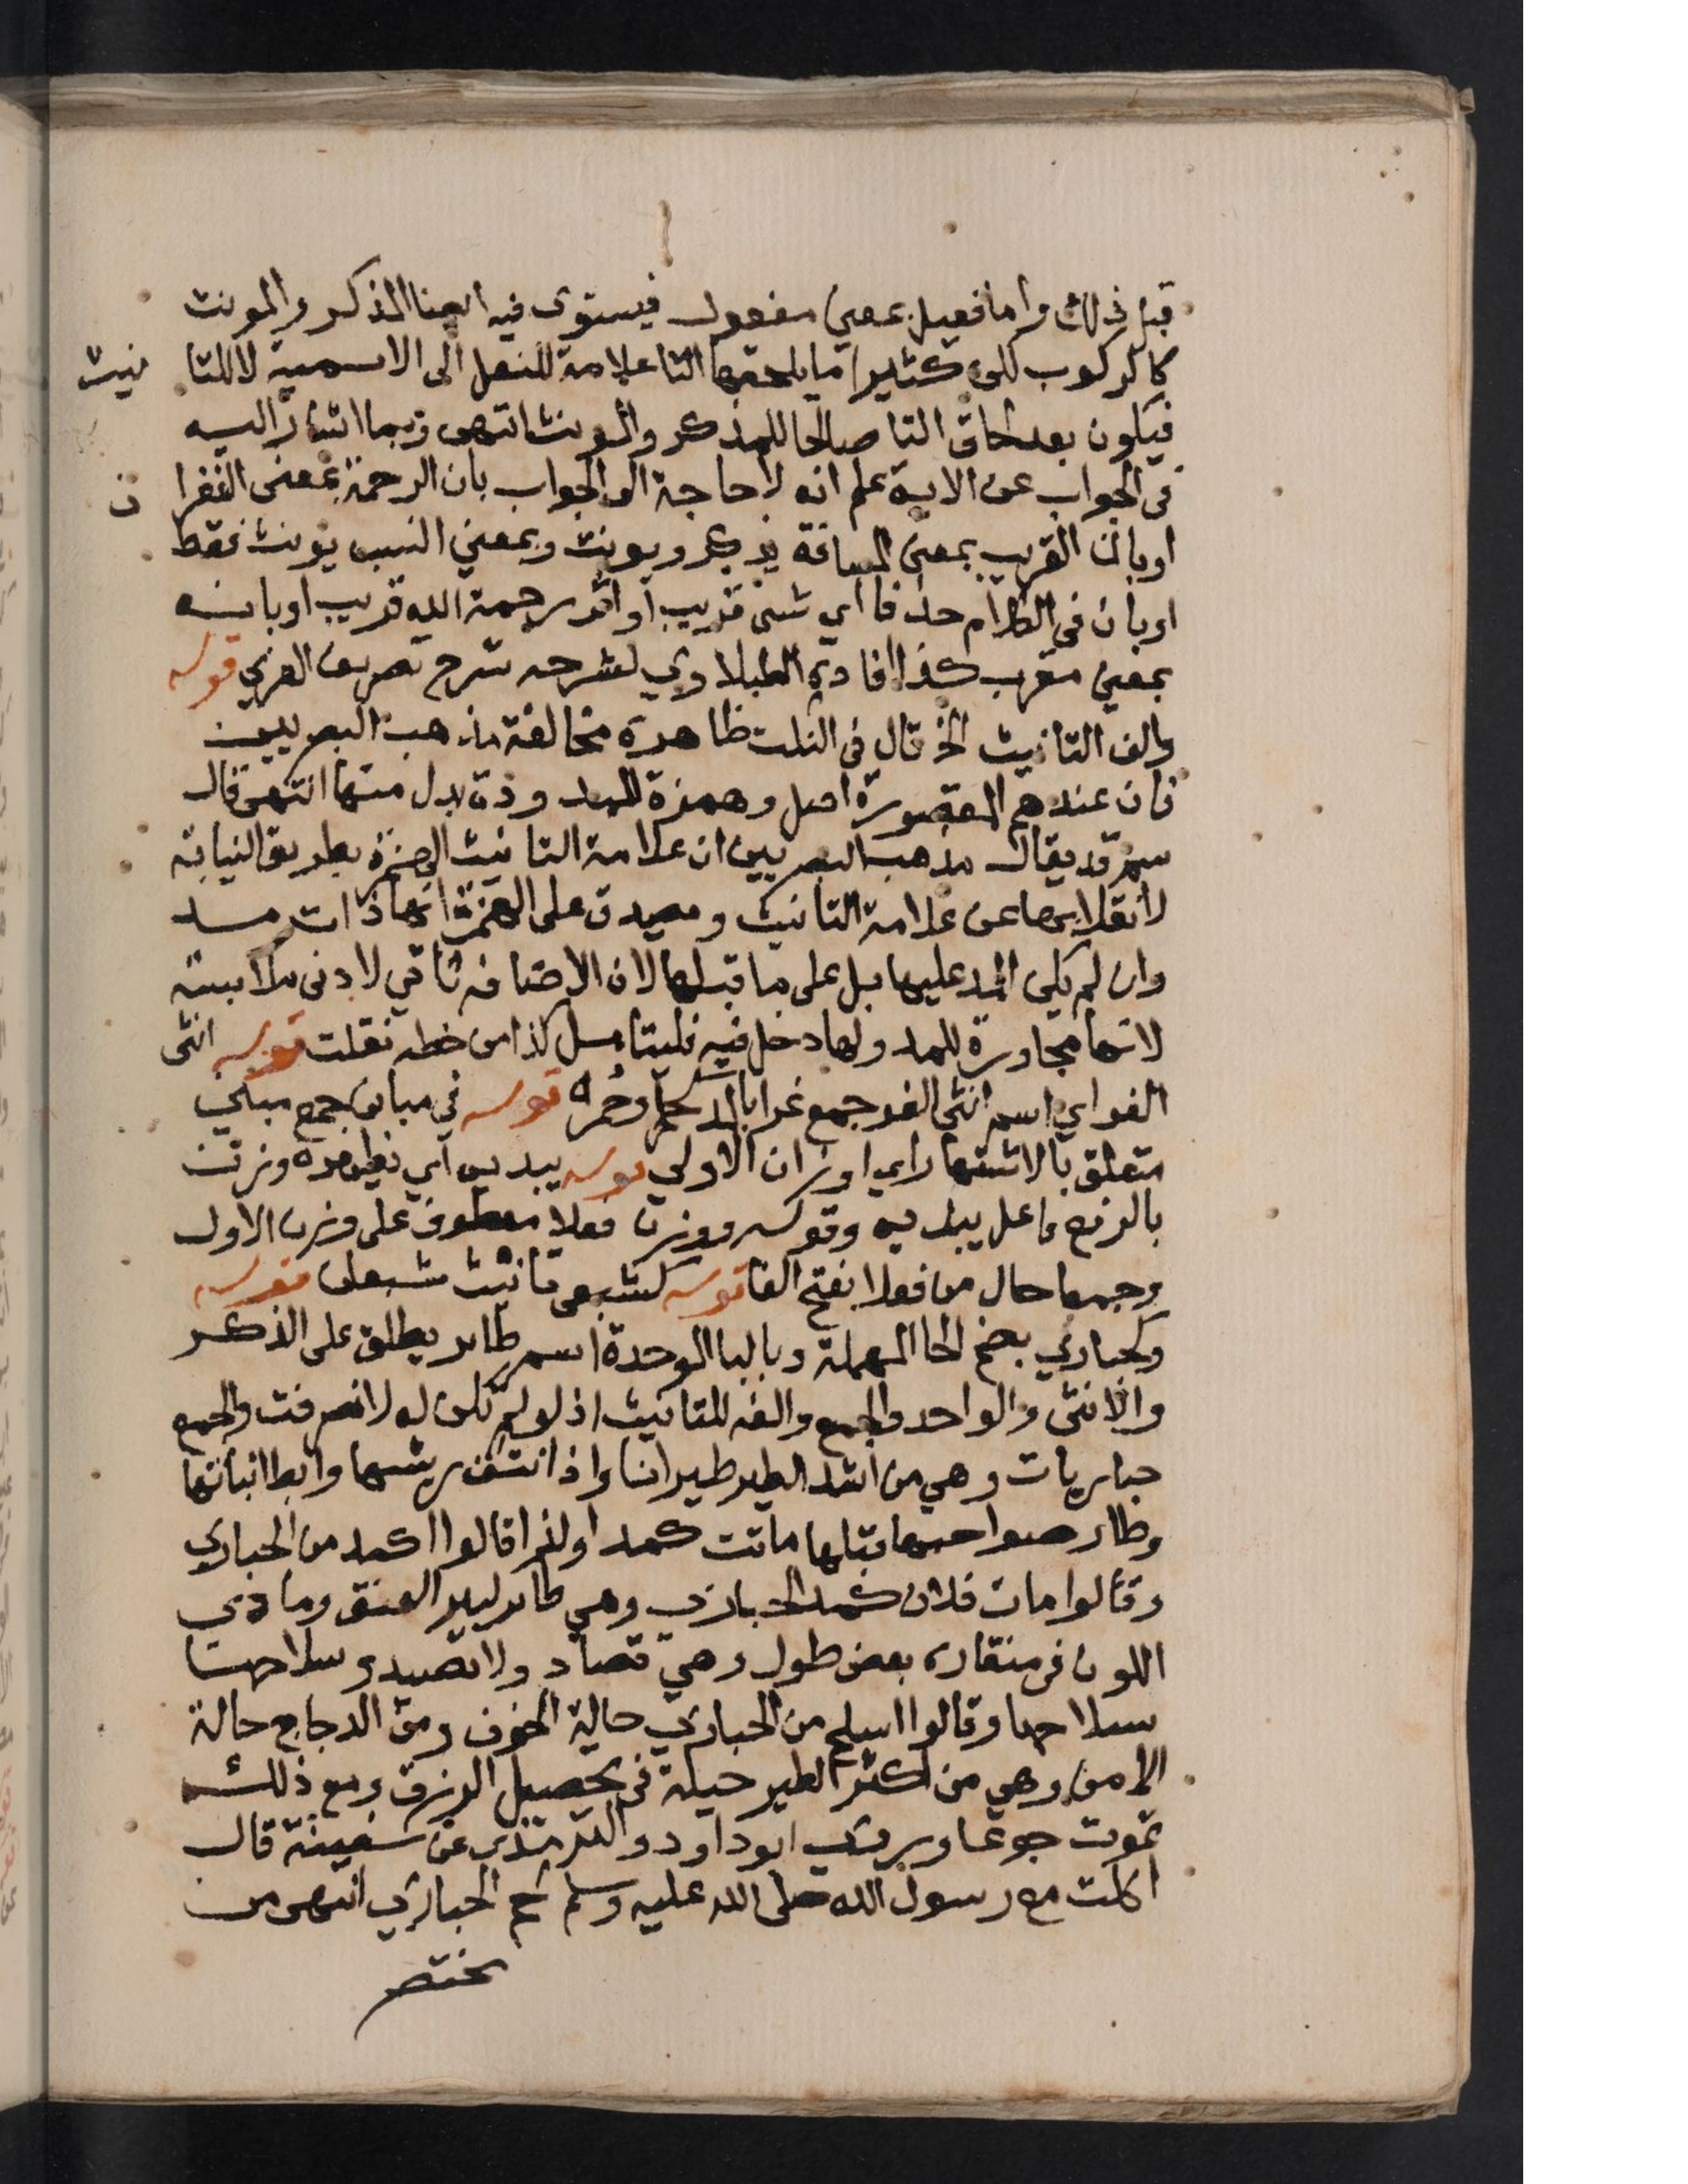 قبل ذلك واما فعيل بمعنى مفعول فيستوى فيه ايضا المذكر والمونث
كالركوب لكن كثيرا ما يلحقها التا علامة للنقل الى الاسمية لا للتا نيث
فيكون بعد لحاق التا صالحا للمذكر والمونث انتهى وبما اشار اليه
فى الجواب عن الاية علم انه لا حاجة الى الجواب بان الرحمة بمعنى الغفرا ن
او بان القريب بمعنى المسافة يذكر ويونث وبمعني النسب يونث فقط
او بان فى الكلام حذفا اي شى قريب او اثر رحمة الله قريب او بانه
بمعني مقرب كذا افاده الطبلاوي لشرحه شرح تصريف العزي قوله
والف التانيث الخ قال فى النكت ظاهره مخالفة مذهب البصريين
فان عندهم المقصورة اصل وهمزة الممدودة بدل منها انتهى قال
سم قد يقال مذهب البصريين ان علامة التانيث الهمزة بطريق النيابة
لانقلابها عن علامة التانيث ويصدق على الهمزة انها ذات مد
وان لم يكن المد عليها بل على ما قبلها لان الاضافة تاتي لادنى ملابسة
لانها مجاورة للمد ولها دخل فيه فليتامل كذا من خطه نقلت قوله انثى
الغر اي اسم انثى الغر جمع غرا بالمد كحمرا وحمر قوله في مباني جمع مبنى
متعلق بالاشتهار اي اوزان الاولي قوله يبديه اي يظهره وزن
بالرفع فاعل يبديه وقوله ووزن فعلا معطوف على وزن الاول
وجمعا حال من فعلا بفتح الفا قوله كشبعى تانيث شبعان قوله
وكحباري بضم الحا المهملة وبالبا الموحدة اسم طاير يطلق على الذكر
والانثى والواحد والجمع والفه للتانيث اذ لو لم تكن له لانصرفت والجمع
حباريات وهي من اشد الطير طيرانا واذا نتف ريشها وابطا نباتها
وطار صواحبها قبلها ماتت كمدا ولذا قالوا اكمد من الحباري
وقالوا مات فلان كمد الحباري وهي طاير كبير العنق رمادي
اللون فى منقاره بعض طول وهي تصاد ولا تصيد وسلاحها
سلاحها وقالوا اسلح من الحباري حالة الخوف ومن الدجاج حالة
الامن وهي من اكثر الطير حيلة فى تحصيل الرزق ومع ذلك
تموت جوعا وروى ابو داود والترمذي عن سفينة قال
اكلت مع رسول الله صلى الله عليه وسلم لحم الحباري انتهى من
مختصر